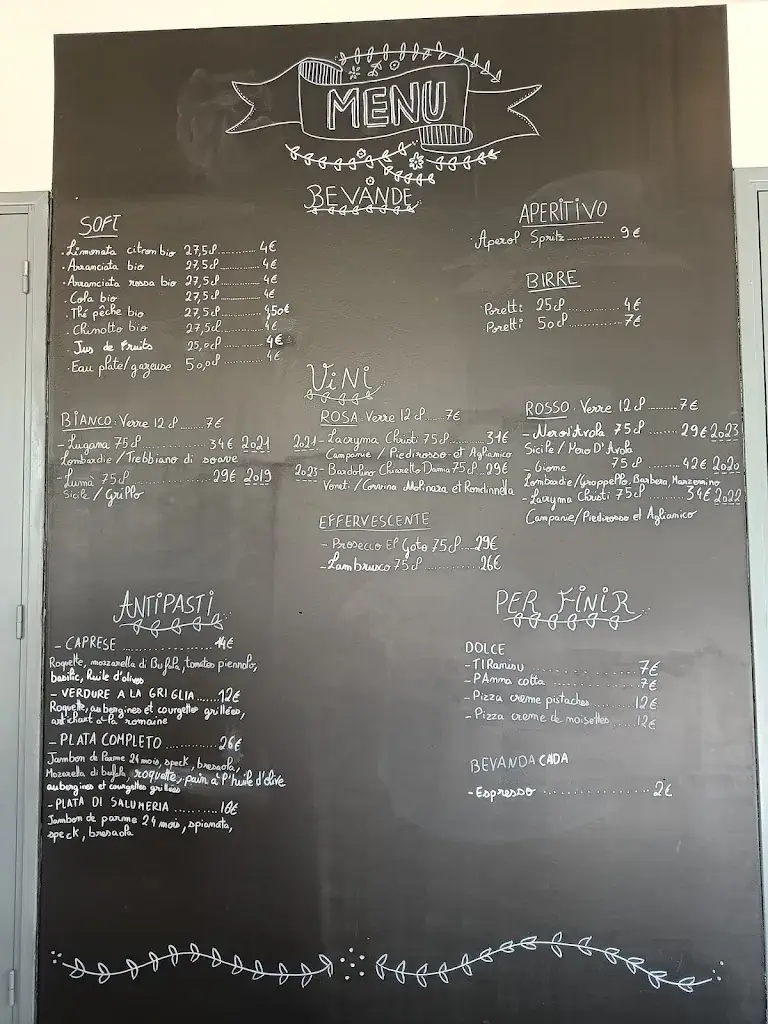 MENU
BEVANDE
SOFT
· Limonata citron bio 27,5cl............4€
· Aranciata bio 27,5cl............4€
· Aranciata rossa bio 27,5cl............4€
· Cola bio 27,5cl............4€
· Thé pêche bio 27,5cl............4,50€
· Chinotto bio 27,5cl............4€
· Jus de fruits 25,0cl............4€
· Eau plate/gazeuse 50,0cl............4€
APERITIVO
· Aperol Spritz............9€
BIRRE
Poretti 25cl............4€
Poretti 50cl............7€
ViNi
BIANCO: Verre 12cl......7€
- Lugana 75cl............34€ 2021
Lombardie/Trebbiano di soave
- Luma 75cl............29€ 2019
Sicile/Grillo
ROSA: Verre 12cl......7€
2021- Lacryma Christi 75cl........31€
Campanie / Piedirosso et Aglianico
2023- Bardolino Chiaretto Damia 75cl..29€
Veneti/Corvina Molinara et Rondinnella
EFFERVESCENTE
- Prosecco El Goto 75cl....29€
- Lambrusco 75cl............26€
ROSSO: Verre 12cl........7€
- Nerod'Avola 75cl........29€ 2023
Sicile / Nero D'Avola
75cl........42€ 2020
Lombardie/Groppello, Barbera, Marzemino
- Lacryma Christi 75cl......34€ 2022
Campanie/Piedirosso et Aglianico
ANTiPASTi
- CAPRESE ..................14€
Roquette, mozzarella di Bufala, tomates piennolo,
basilic, huile d'olives
- VERDURE A LA GRIGLIA.....12€
Roquette, aubergines et courgettes grillées,
artichaut à la romaine
- PLATA COMPLETO ............26€
Jambon de Parme 24 mois, speck, bresaola,
Mozarella di bufala, roquette, pain à l'huile d'olive
aubergines et courgettes grillées
- PLATA DI SALUMERIA ..........16€
Jambon de parme 24 mois, spianata,
speck, bresaola
PER FiNiR
DOLCE
- TIRamisu ..................7€
- PAnna cotta ..................7€
- Pizza creme pistaches............12€
- Pizza creme de noisettes......12€
BEVANDA CADA
- Espresso ..................2€